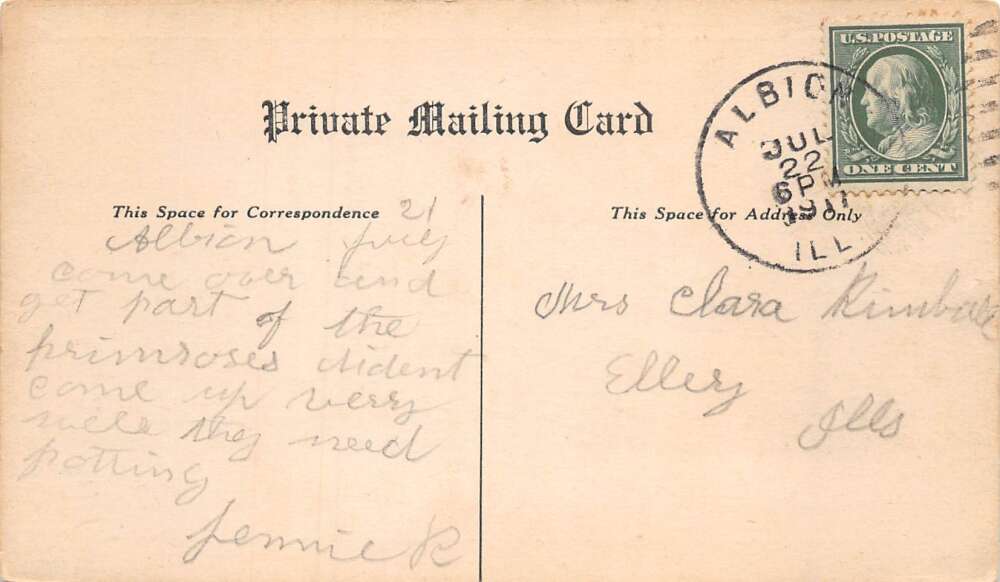 Private Mailing Card
This Space for Correspondence
This Space for Address Only
U.S.POSTAGE
ONE CENT
ALBION
JUL
22
6PM
1911
ILL.
Albion July 21
come over and
get part of the
primroses dident
come up very
well they need
potting
Jennie R
Mrs Clara Kimball
Ellery
Ills